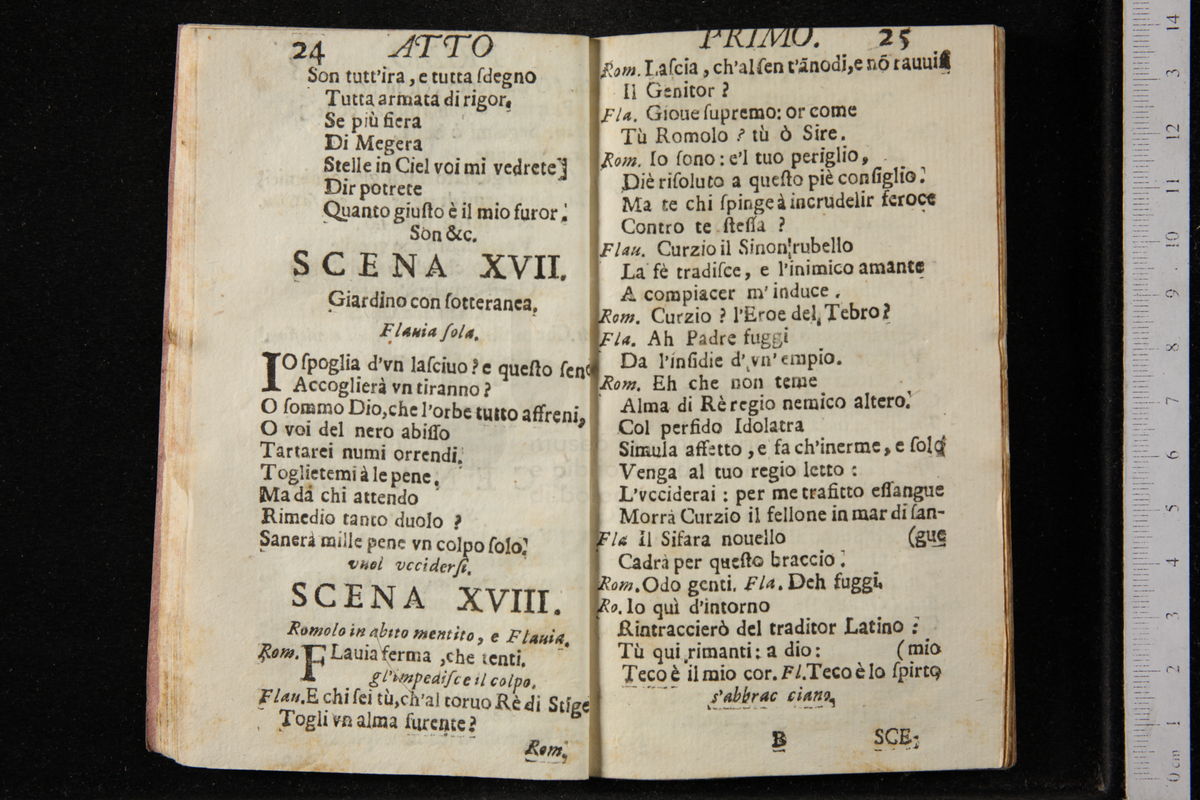 24 ATTO
Son tutt'ira, e tutta ſdegno
Tutta armata di rigor.
Se più fiera
Di Megera
Stelle in Ciel voi mi vedrete;
Dir potrete
Quanto giuſto è il mio furor.
Son &c.
SCENA XVII.
Giardino con ſotteranea.
Flauia ſola.
IO ſpoglia d'vn laſciuo? e queſto ſeno
Accoglierà vn tiranno?
O ſommo Dio, che l'orbe tutto affreni,
O voi del nero abiſſo
Tartarei numi orrendi.
Toglietemi à le pene.
Ma da chi attendo
Rimedio tanto duolo ?
Sanerà mille pene vn colpo ſolo.
vuol vcciderſi.
SCENA XVIII.
Romolo in abito mentito, e Flauia.
Rom. FLauia ferma , che tenti.
gl'impediſce il colpo.
Flau. E chi ſei tù, ch'al toruo Rè di Stige
Togli vn alma furente?
Rom.
PRIMO. 25
Rom. Laſcia , ch'al ſen t'ānodi, e nō rauuiſi
Il Genitor ?
Fla. Gioue ſupremo: or come
Tù Romolo ? tù ò Sire.
Rom. Io ſono : e'l tuo periglio,
Diè riſoluto a queſto piè conſiglio.
Ma te chi ſpinge à incrudelir feroce
Contro te ſteſſa ?
Flau. Curzio il Sinon rubello
La fè tradiſce, e l'inimico amante
A compiacer m'induce .
Rom. Curzio ? l'Eroe del Tebro?
Fla. Ah Padre fuggi
Da l'inſidie d'vn' empio.
Rom. Eh che non teme
Alma di Rè regio nemico altero.
Col perfido Idolatra
Simula affetto , e fa ch'inerme, e ſolo
Venga al tuo regio letto :
L'vcciderai : per me trafitto eſſangue
Morrà Curzio il fellone in mar di ſan-
Fla Il Siſara nouello (gue
Cadrà per queſto braccio .
Rom. Odo genti. Fla. Deh fuggi.
Ro. Io quì d'intorno
Rintraccierò del traditor Latino :
Tù qui rimanti : a dio : (mio
Teco è il mio cor. Fl. Teco è lo ſpirto
s'abbrac ciano.
B SCE-